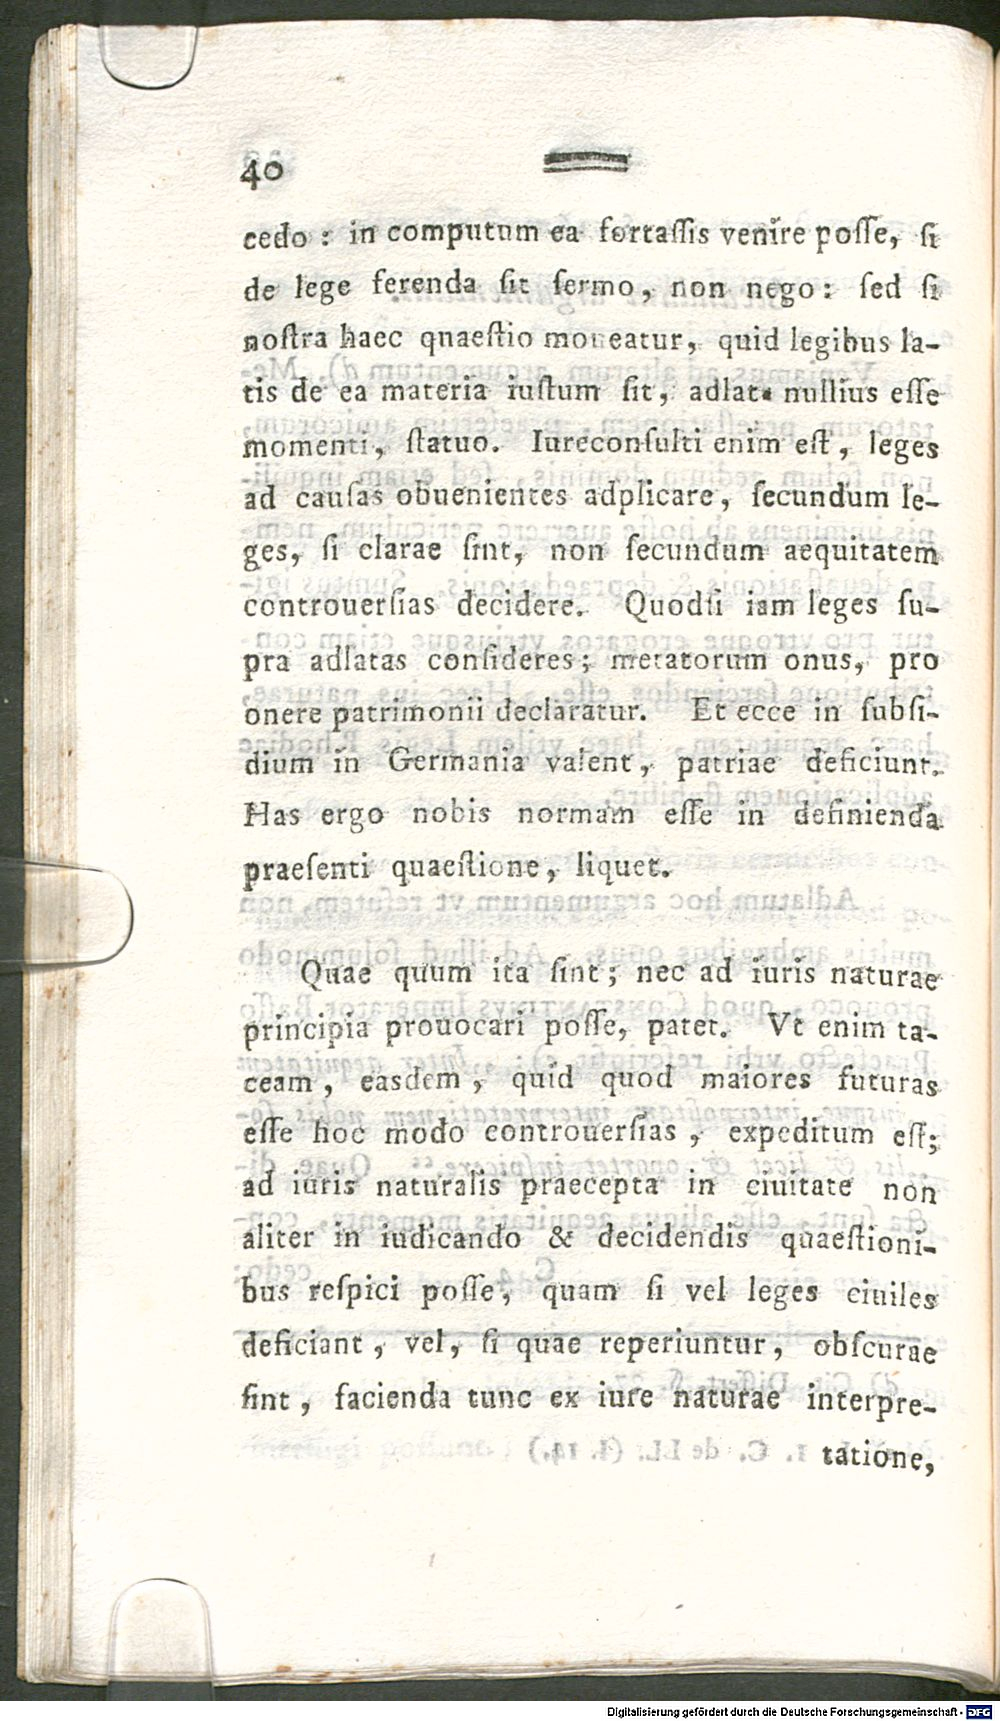 40
cedo: in computum ea fortaſſis venire poſſe, ſi
de lege ferenda ſit ſermo, non nego: ſed ſi
noſtra haec quaeſtio moueatur, quid legibus la-
tis de ea materia iuſtum ſit, adlata nullius eſſe
momenti, ſtatuo. Iureconſulti enim eſt, leges
ad cauſas obuenientes adplicare, ſecundum le-
ges, ſi clarae ſint, non ſecundum aequitatem
controuerſias decidere. Quodſi iam leges ſu-
pra adlatas conſideres; metatorum onus, pro
onere patrimonii declaratur. Et ecce in ſubſi-
dium in Germania valent, patriae deficiunt.
Has ergo nobis normam eſſe in definienda
praeſenti quaeſtione, liquet.
Quae quum ita ſint; nec ad iuris naturae
principia prouocari poſſe, patet. Vt enim ta-
ceam, easdem, quid quod maiores futuras
eſſe hoc modo controuerſias, expeditum eſt;
ad iuris naturalis praecepta in ciuitate non
aliter in iudicando & decidendis quaeſtioni-
bus reſpici poſſe, quam ſi vel leges ciuiles
deficiant, vel, ſi quae reperiuntur, obſcurae
ſint, facienda tunc ex iure naturae interpre-
tatione,
Digitalisierung gefördert durch die Deutsche Forschungsgemeinschaft - DFG